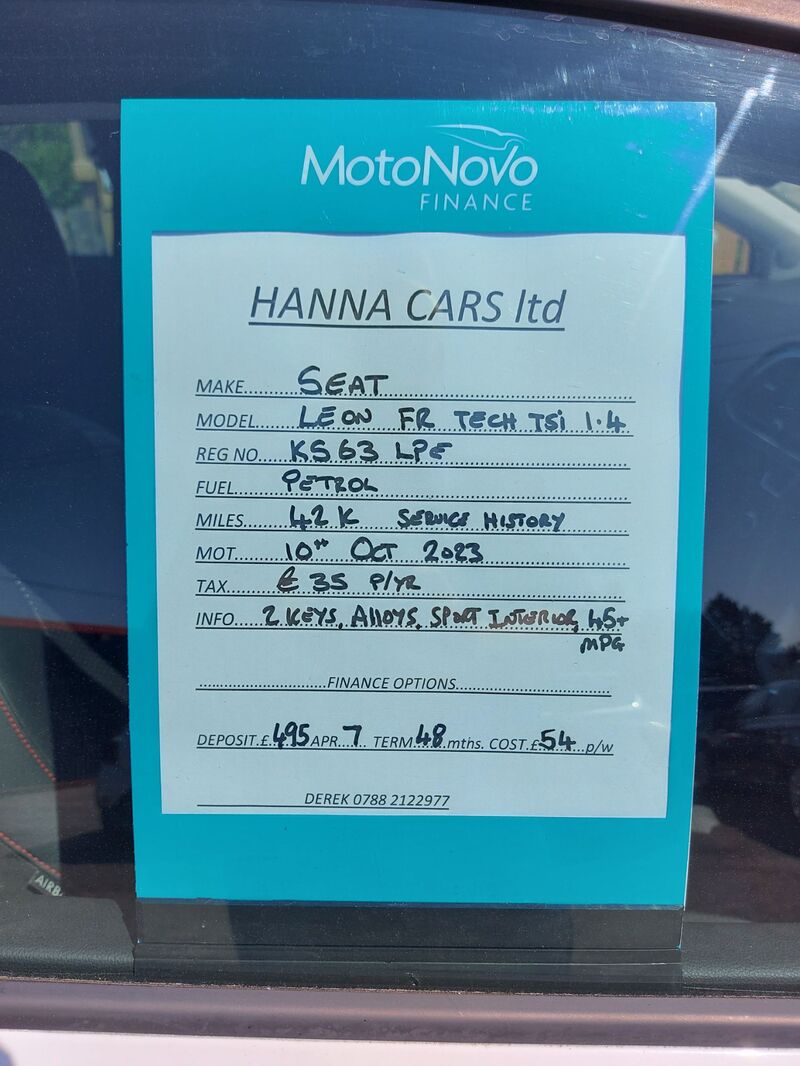 MotoNovo
FINANCE
HANNA CARS ltd
MAKE.......SEAT
MODEL.......LEON FR TECH TSi 1.4
REG NO.....KS63 LPE
FUEL.......PETROL
MILES.......42K SERVICE HISTORY
MOT.......10TH OCT 2023
TAX.......£35 P/YR
INFO.......2 KEYS, ALLOYS, SPORT INTERIOR, 45+
MPG
.......FINANCE OPTIONS.......
DEPOSIT.£.495 APR...7 TERM.48.mths. COST.£54...p/w
DEREK 0788 2122977
AIRB